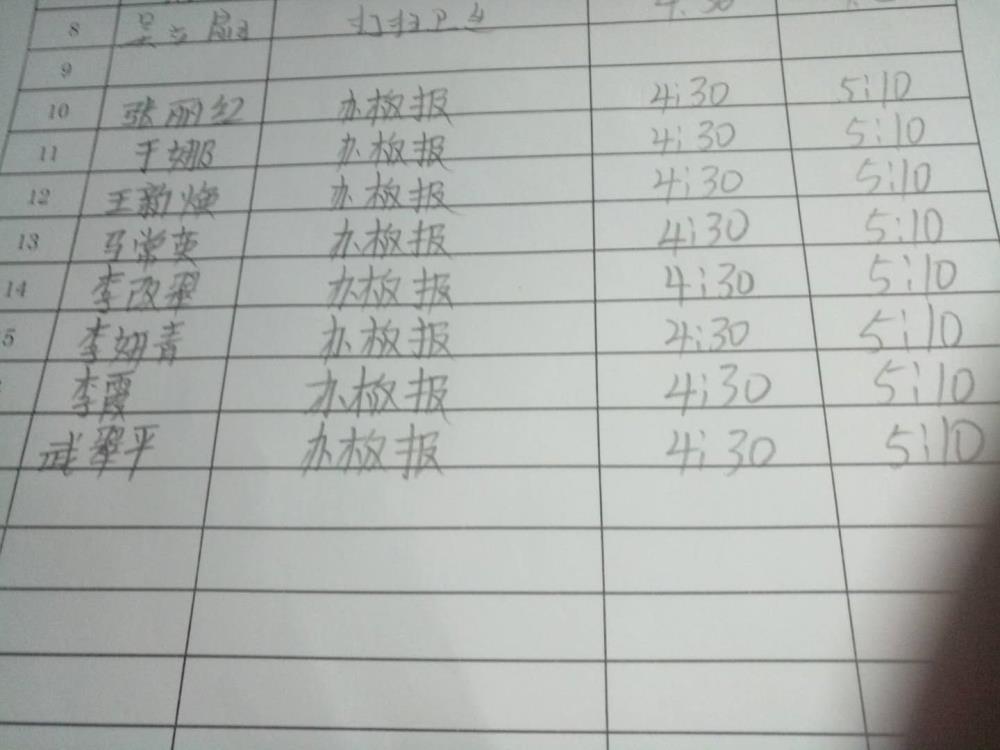 8 打扫卫生 4:30
9
10 张丽红 办板报 4:30 5:10
11 于娜 办板报 4:30 5:10
12 王新焕 办板报 4:30 5:10
13 马常英 办板报 4:30 5:10
14 李改翠 办板报 4:30 5:10
5 李妞青 办板报 4:30 5:10
李霞 办板报 4:30 5:10
武翠平 办板报 4:30 5:10